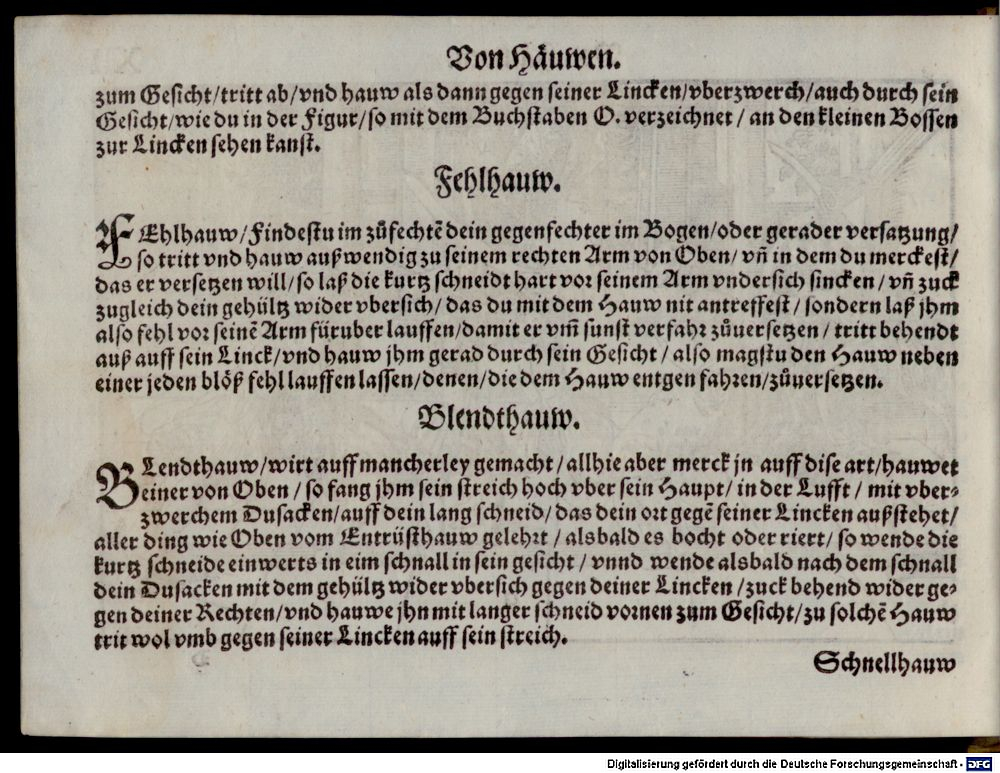 Von Häuwen.
zum Gesicht/tritt ab/vnd hauw als dann gegen seiner Lincken/vberzwerch/auch durch sein
Gesicht/wie du in der Figur/so mit dem Buchstaben O. verzeichnet / an den kleinen Bossen
zur Lincken sehen kanst.
Fehlhauw.
FEhlhauw/Findestu im zůfechtẽ dein gegenfechter im Bogen/oder gerader versatzung/
so tritt vnd hauw außwendig zu seinem rechten Arm von Oben/ vñ in dem du merckest/
das er versetzen will/so laß die kurtz schneidt hart vor seinem Arm vndersich sincken / vñ zuck
zugleich dein gehültz wider vbersich/das du mit dem Hauw nit antreffest / sondern laß jhm
also fehl vor seinẽ Arm fürüber lauffen/damit er vm̃ sunst verfahr zůuersetzen / tritt behendt
auß auff sein Linck/vnd hauw jhm gerad durch sein Gesicht / also magstu den Hauw neben
einer jeden blöß fehl lauffen lassen/denen/die dem Hauw entgen fahren/zůuersetzen.
Blendthauw.
BLendthauw/wirt auff mancherley gemacht/allhie aber merck jn auff dise art/hauwet
einer von Oben / so fang jhm sein streich hoch vber sein Haupt/ in der Lufft / mit vber⸗
zwerchem Dusacken/auff dein lang schneid/ das dein ort gegẽ seiner Lincken außstehet/
aller ding wie Oben vom Entrüsthauw gelehrt / alsbald es bocht oder riert/ so wende die
kurtz schneide einwerts in eim schnall in sein gesicht / vnnd wende alsbald nach dem schnall
dein Dusacken mit dem gehültz wider vbersich gegen deiner Lincken /zuck behend wider ge⸗
gen deiner Rechten/vnd hauwe jhn mit langer schneid vornen zum Gesicht/zu solchẽ Hauw
trit wol vmb gegen seiner Lincken auff sein streich.
Schnellhauw
Digitalisierung gefördert durch die Deutsche Forschungsgemeinschaft - DFG